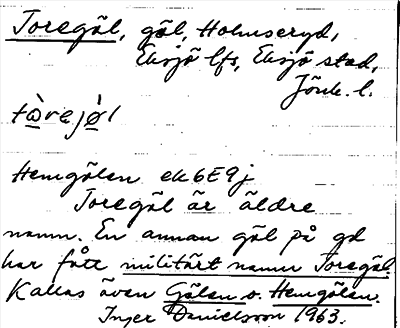 Toregöl, göl, Holmseryd,
Eksjö lfs, Eksjö stad,
Jönk. l.
tòrejø̀l
Hemgölen ek6E9j
Toregöl är äldre
namn. En annan göl på gd
har fått militärt namn Toregöl.
Kallas även Gölen o. Hemgölen.
Inger Danielsson 1963.